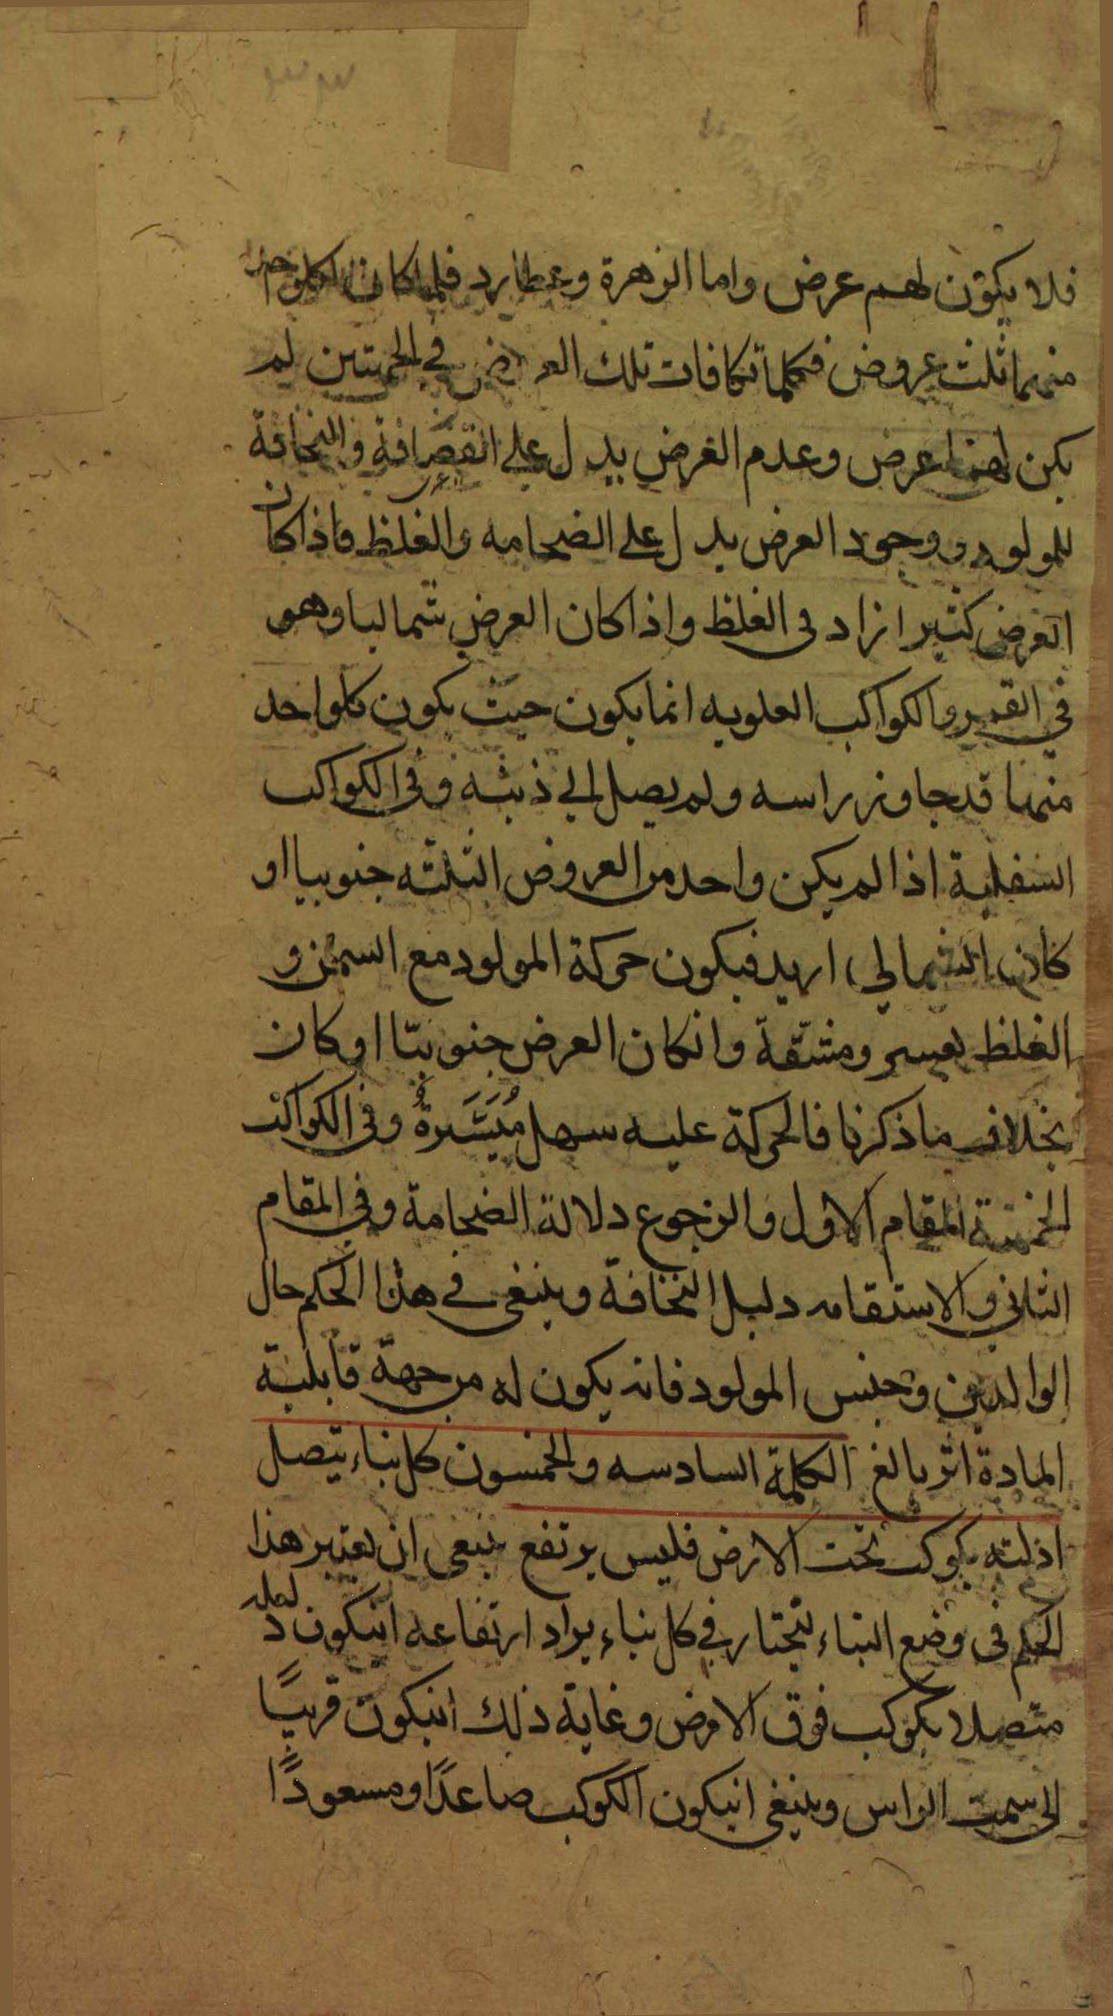 فلا يكون لهم عرض واما الزهرة وعطارد فلما كان لكلواحد
منهما ثلث عروض فكلما تكافات تلك العروض في الجهتين لم
يكن لهما عرض وعدم العرض يدل على القصرافة والنحافة
للمولود ووجود العرض يدل على الضخامه والغلظ فاذا كان
العرض كثيرا زاد في الغلظ واذا كان العرض شماليا وهو
في القمر والكواكب العلويه انما يكون حيث يكون كلواحد
منهما قد جاوز راسه ولم يصل الى ذنبه وفي الكواكب
السفلية اذا لم يكن واحد من العروض الثلثه جنوبيا او
كان الشمالي ازيد فيكون حركة المولود مع السمن و
الغلظ بعسر ومشقة وانكان العرض جنوبيّا او كان
بخلاف ما ذكرنا فالحركة عليه سهل مُيَسَّرةٌ وفي الكواكب
الخمسة المقام الاول والرجوع دلالة الضخامة وفي المقام
الثاني والاستقامه دليل النحافة وينبغي في هذا الحكم حال
الوالدين وجنس المولود فانه يكون له من جهة قابلية
المادة اثر بالغ الكلمة السادسه والخمسون كل بناء يتصل
ادلته بكوكب تحت الارض فليس يرتفع ينبغي ان يعتبر هذا
الحكم في وضع البناء لتختار في كل بناء يراد ارتفاعه انيكون
متصلا بكوكب فوق الارض وغاية ذلك انيكون قريبًا
الى سمت الراس وينبغي انيكون الكوكب صاعدًا ومسعودًا